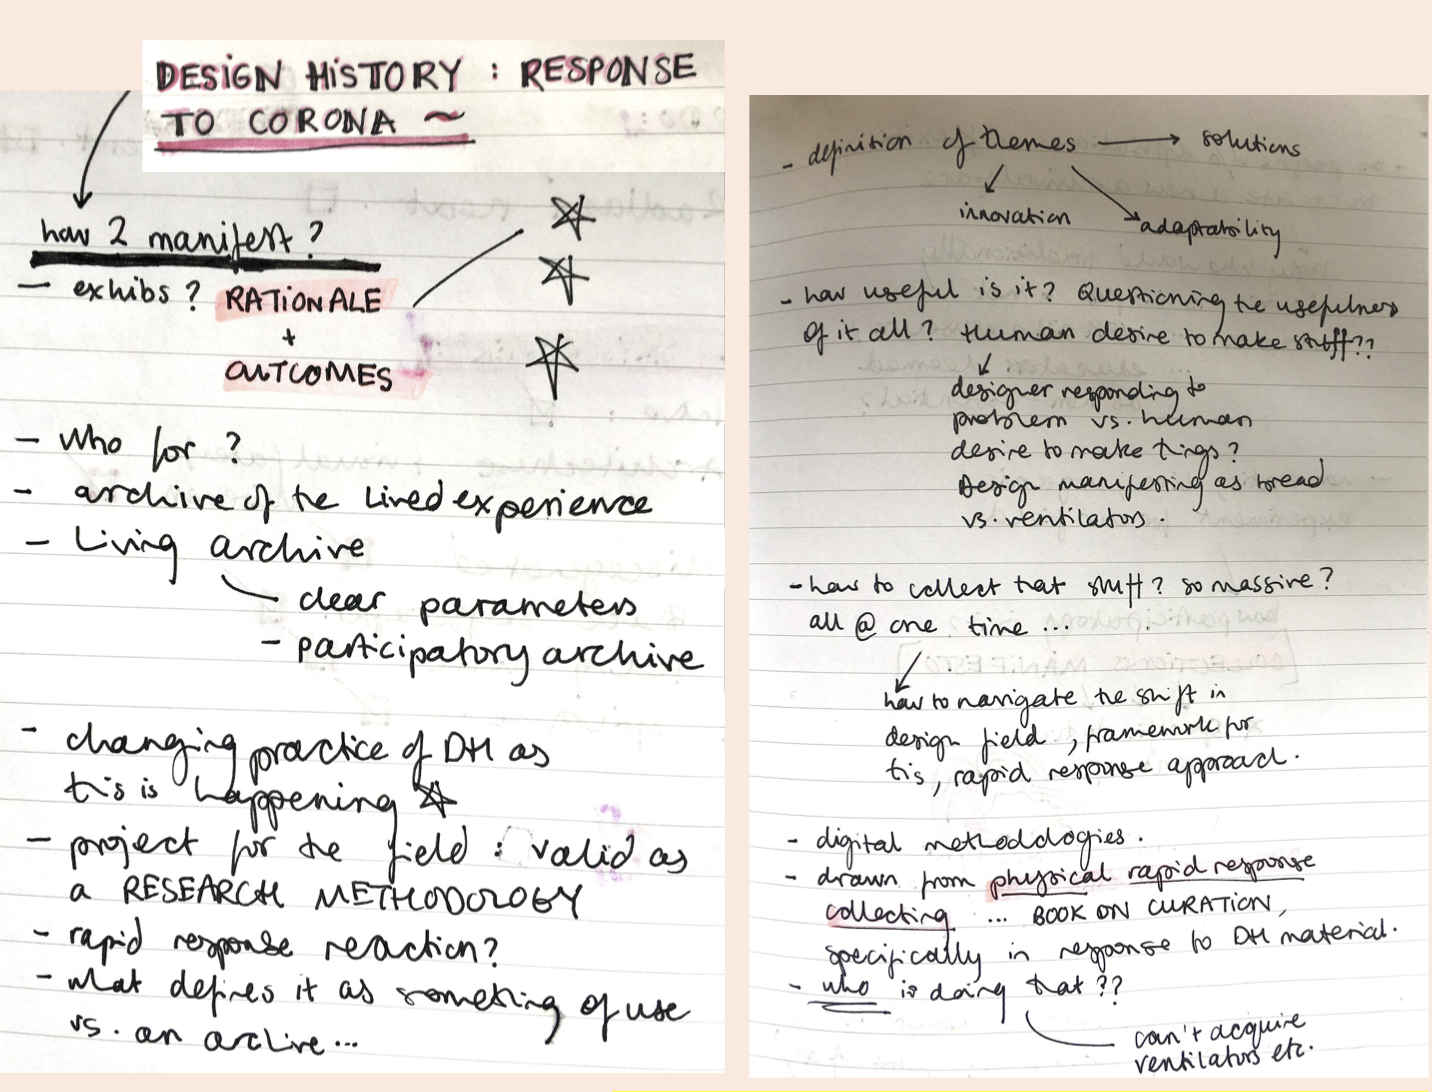 DESIGN HISTORY : RESPONSE
TO CORONA ~
how 2 manifest?
- exhibs? RATIONALE
+
OUTCOMES
- Who for?
- archive of the lived experience
- Living archive
- clear parameters
- participatory archive
- changing practice of DH as
this is happening
- project for the field : valid as
a RESEARCH METHODOLOGY
- rapid response reaction?
- what defines it as something of use
vs. an archive...
- definition of themes → solutions
innovation
adaptability
- how useful is it? Questioning the usefulness
of it all? Human desire to make stuff??
designer responding to
problem vs. human
desire to make things?
Design manifesting as bread
vs. ventilators.
- how to collect that stuff? so massive?
all @ one time ...
how to navigate the shift in
design field, framework for
this, rapid response approach.
- digital methodologies.
- drawn from physical rapid response
collecting ... BOOK ON CURATION,
specifically in response to DH material.
- who is doing that??
can't acquire
ventilators etc.